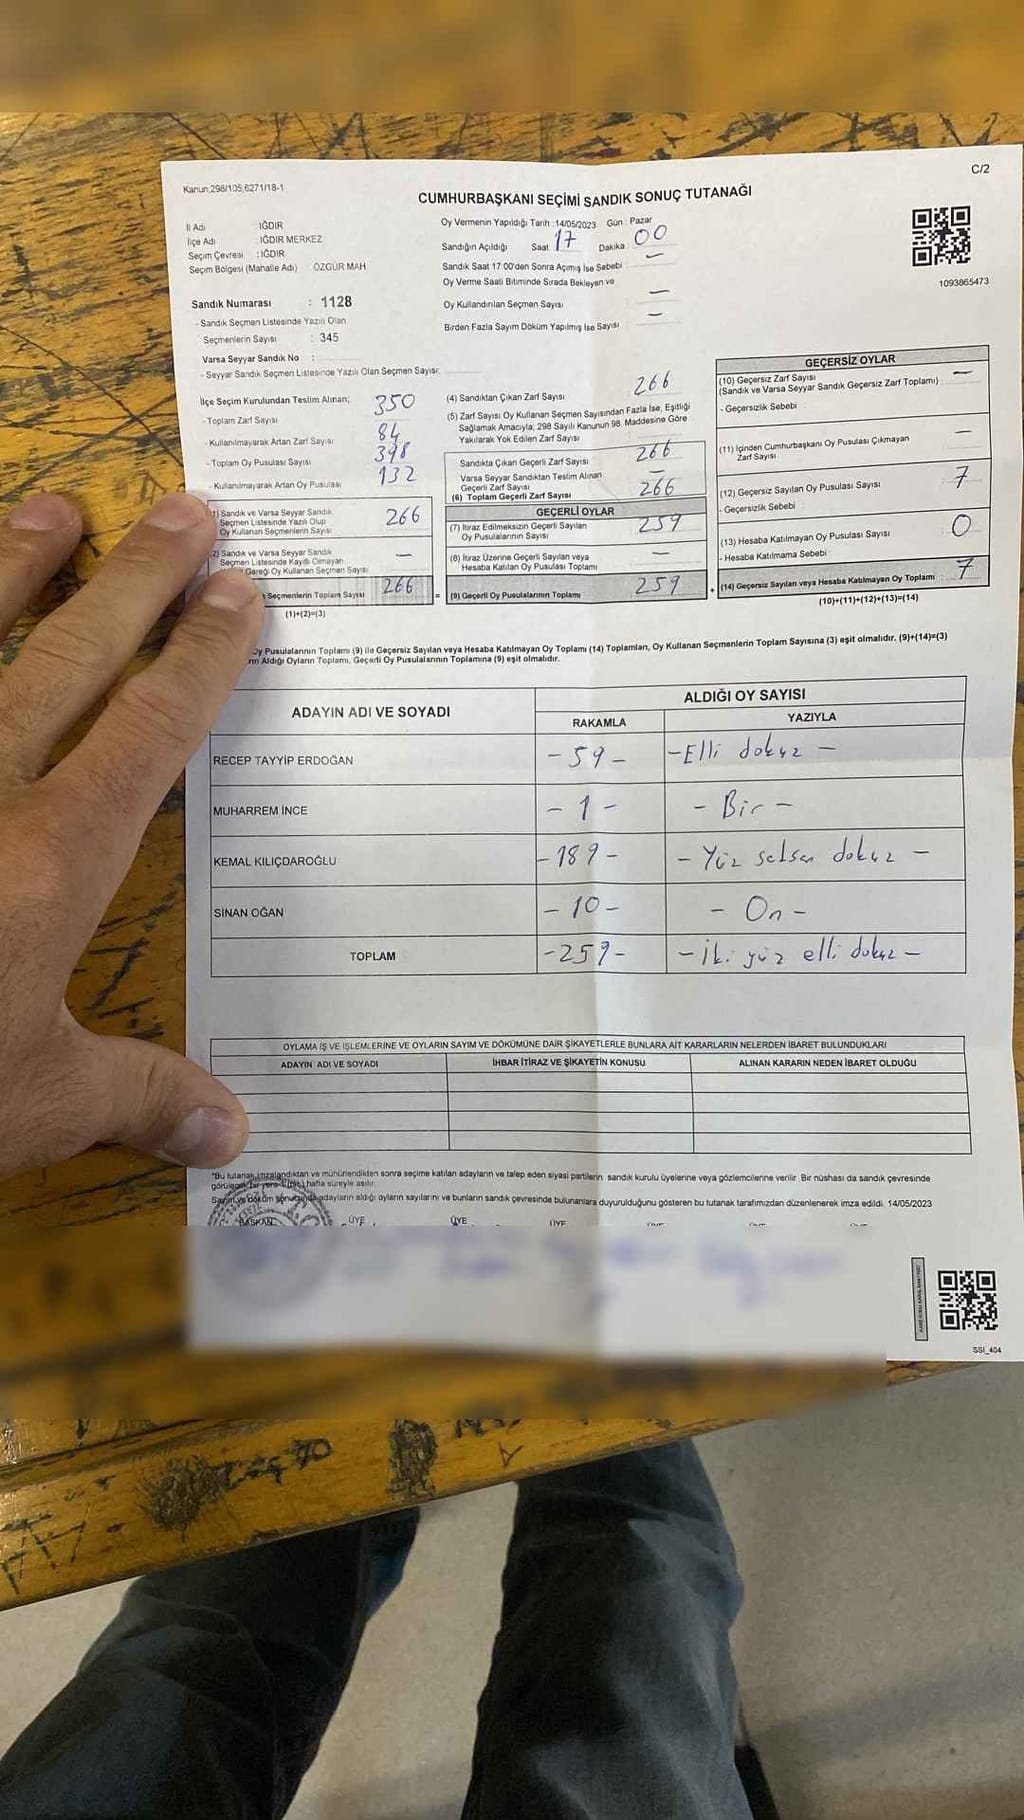 C/2
Kanun,298/105,6271/18-1
CUMHURBAŞKANI SEÇİMİ SANDIK SONUÇ TUTANAĞI
İl Adı : IĞDIR
İlçe Adı : IĞDIR MERKEZ
Seçim Çevresi : IĞDIR
Seçim Bölgesi (Mahalle Adı) ÖZGÜR MAH
Oy Vermenin Yapıldığı Tarih :14/05/2023 Gün : Pazar
Sandığın Açıldığı Saat 17 Dakika : 00
Sandık Saat 17:00'den Sonra Açımış İse Sebebi : —
Oy Verme Saati Bitiminde Sırada Bekleyen ve
Oy Kullandırılan Seçmen Sayısı —
Birden Fazla Sayım Döküm Yapılmış İse Sayısı —
1093865473
Sandık Numarası : 1128
- Sandık Seçmen Listesinde Yazılı Olan
Seçmenlerin Sayısı : 345
Varsa Seyyar Sandık No :
- Seyyar Sandık Seçmen Listesinde Yazılı Olan Seçmen Sayısı:
İlçe Seçim Kurulundan Teslim Alınan;
- Toplam Zarf Sayısı 350
- Kullanılmayarak Artan Zarf Sayısı 84
- Toplam Oy Pusulası Sayısı 398
- Kullanılmayarak Artan Oy Pusulası 132
1) Sandık ve Varsa Seyyar Sandık
Seçmen Listesinde Yazılı Olup
Oy Kullanan Seçmenlerin Sayısı 266
2) Sandık ve Varsa Seyyar Sandık
Seçmen Listesinde Kayıtlı Olmayan
Gereği Oy Kullanan Seçmen Sayısı —
Seçmenlerin Toplam Sayısı 266 =
(1)+(2)=(3)
(4) Sandıktan Çıkan Zarf Sayısı 266
(5) Zarf Sayısı Oy Kullanan Seçmen Sayısından Fazla İse, Eşitliği
Sağlamak Amacıyla; 298 Sayılı Kanunun 98. Maddesine Göre
Yakılarak Yok Edilen Zarf Sayısı
Sandıkta Çıkan Geçerli Zarf Sayısı 266
Varsa Seyyar Sandıktan Teslim Alınan
Geçerli Zarf Sayısı —
(6) Toplam Geçerli Zarf Sayısı 266
GEÇERLİ OYLAR
(7) İtiraz Edilmeksizin Geçerli Sayılan
Oy Pusulalarının Sayısı 259
(8) İtiraz Üzerine Geçerli Sayılan veya
Hesaba Katılan Oy Pusulası Toplamı —
(9) Geçerli Oy Pusulalarının Toplamı 259 +
GEÇERSİZ OYLAR
(10) Geçersiz Zarf Sayısı
(Sandık ve Varsa Seyyar Sandık Geçersiz Zarf Toplamı) : —
- Geçersizlik Sebebi :
(11) İçinden Cumhurbaşkanı Oy Pusulası Çıkmayan
Zarf Sayısı —
(12) Geçersiz Sayılan Oy Pusulası Sayısı 7
- Geçersizlik Sebebi :
(13) Hesaba Katılmayan Oy Pusulası Sayısı 0
- Hesaba Katılmama Sebebi :
(14) Geçersiz Sayılan veya Hesaba Katılmayan Oy Toplamı 7
(10)+(11)+(12)+(13)=(14)
Oy Pusulalarının Toplamı (9) ile Geçersiz Sayılan veya Hesaba Katılmayan Oy Toplamı (14) Toplamları, Oy Kullanan Seçmenlerin Toplam Sayısına (3) eşit olmalıdır. (9)+(14)=(3)
Aldığı Oyların Toplamı, Geçerli Oy Pusulalarının Toplamına (9) eşit olmalıdır.
ADAYIN ADI VE SOYADI ALDIĞI OY SAYISI
RAKAMLA YAZIYLA
RECEP TAYYİP ERDOĞAN - 59 - - Elli dokuz -
MUHARREM İNCE - 1 - - Bir -
KEMAL KILIÇDAROĞLU - 189 - - Yüz seksen dokuz -
SİNAN OĞAN - 10 - - On -
TOPLAM - 259 - - İki yüz elli dokuz -
OYLAMA İŞ VE İŞLEMLERİNE VE OYLARIN SAYIM VE DÖKÜMÜNE DAİR ŞİKAYETLERLE BUNLARA AİT KARARLARIN NELERDEN İBARET BULUNDUKLARI
ADAYIN ADI VE SOYADI İHBAR İTİRAZ VE ŞİKAYETİN KONUSU ALINAN KARARIN NEDEN İBARET OLDUĞU
*Bu tutanak imzalandıktan ve mühürlendikten sonra seçime katılan adayların ve talep eden siyasi partilerin sandık kurulu üyelerine veya gözlemcilerine verilir. Bir nüshası da sandık çevresinde
görülecek bir yere 1 (bir) hafta süreyle asılır.
Sayım ve döküm sonucunda adayların aldığı oyların sayılarını ve bunların sandık çevresinde bulunanlara duyurulduğunu gösteren bu tutanak tarafımızdan düzenlenerek imza edildi. 14/05/2023
BAŞKAN ÜYE ÜYE ÜYE
SSI_404